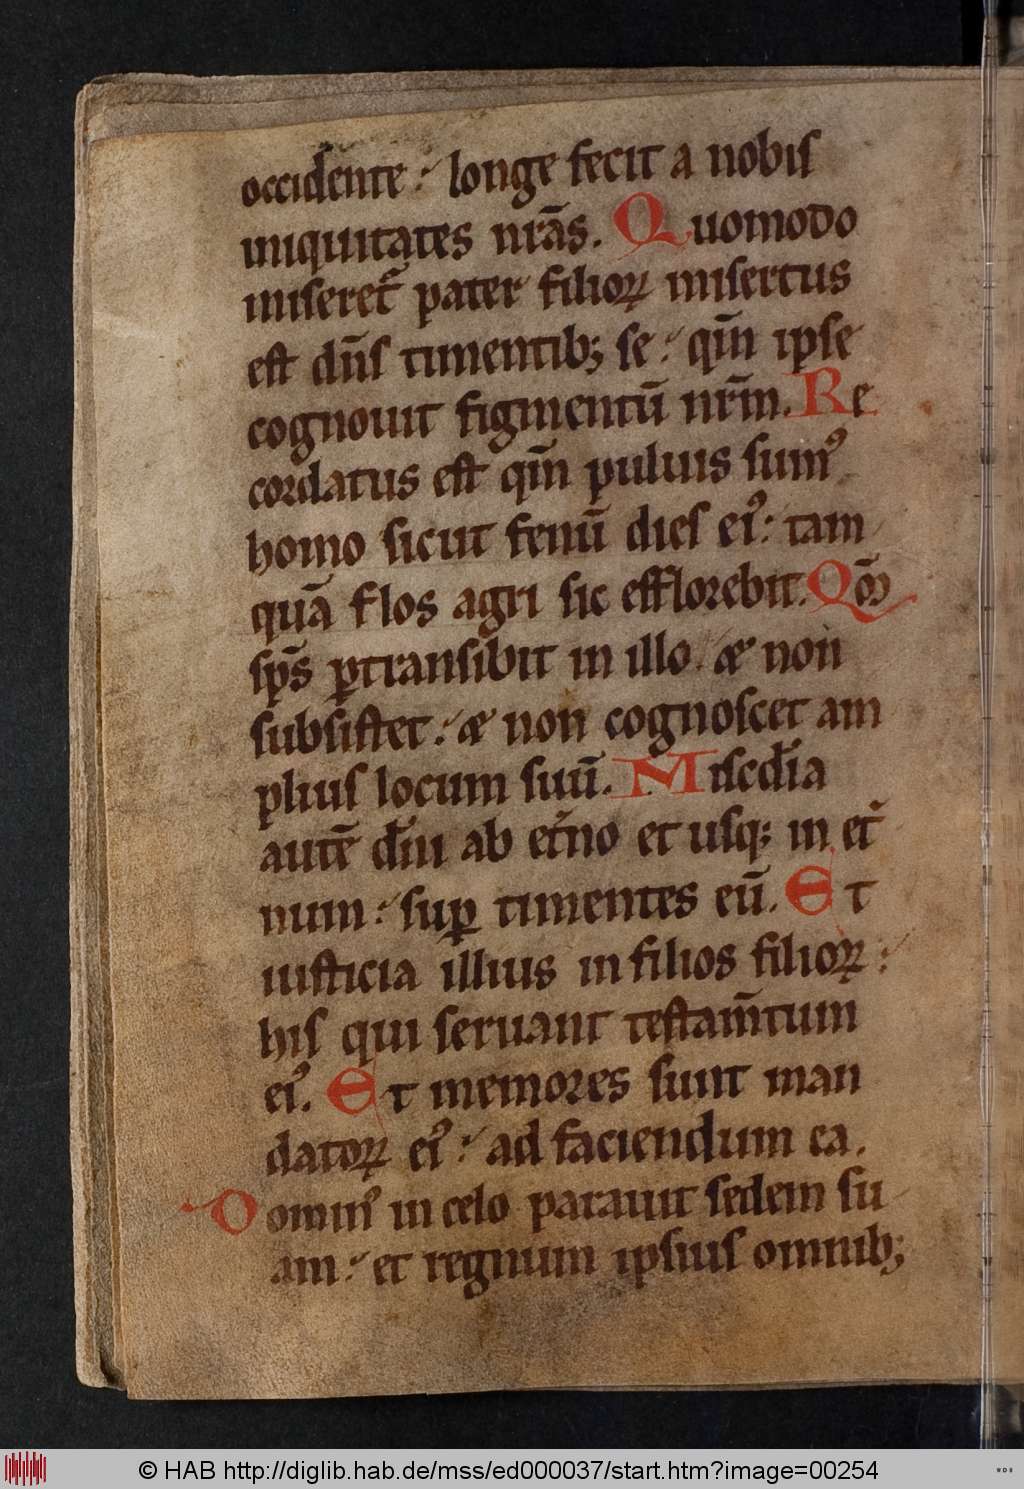 occidente : longe fecit a nobis
iniquitates nr̄as. Quomodo
miseret᷑ pater filioꝝ misertus
est dn̄s timentib; se : qm̄ ipse
cognouit figmentū nr̄m. Re
cordatus est qm̄ puluis sumꝰ
homo sicut fenū dies eiꝰ : tam
quā flos agri sic efflorebit. Qm̄
sp̄s ꝑtransibit in illo / & non
subsistet : & non cognoscet am
plius locum suū. Misc̄dia
autē dn̄i ab et̾no et usq; in et̾
num : suꝑ timentes eū. Et
iusticia illius in filios filioꝝ :
his qui seruant testam̄tum
eiꝰ. Et memores sunt man
datoꝝ eiꝰ : ad faciendum ea.
Dominꝰ in celo parauit sedem su
am : et regnum ipsius omnib;
© HAB http://diglib.hab.de/mss/ed000037/start.htm?image=00254